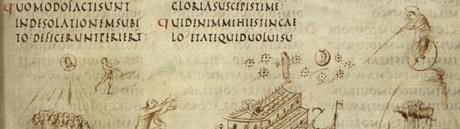 QUOMODOFACTISUNT
INDESOLATIONEMSUBI
TO DEFICERUNTPERIERT
GLORIASUSCEPISTIME:
QUIDENIMMIHIESTINCAE
LOETATEQUIDUOLUISU